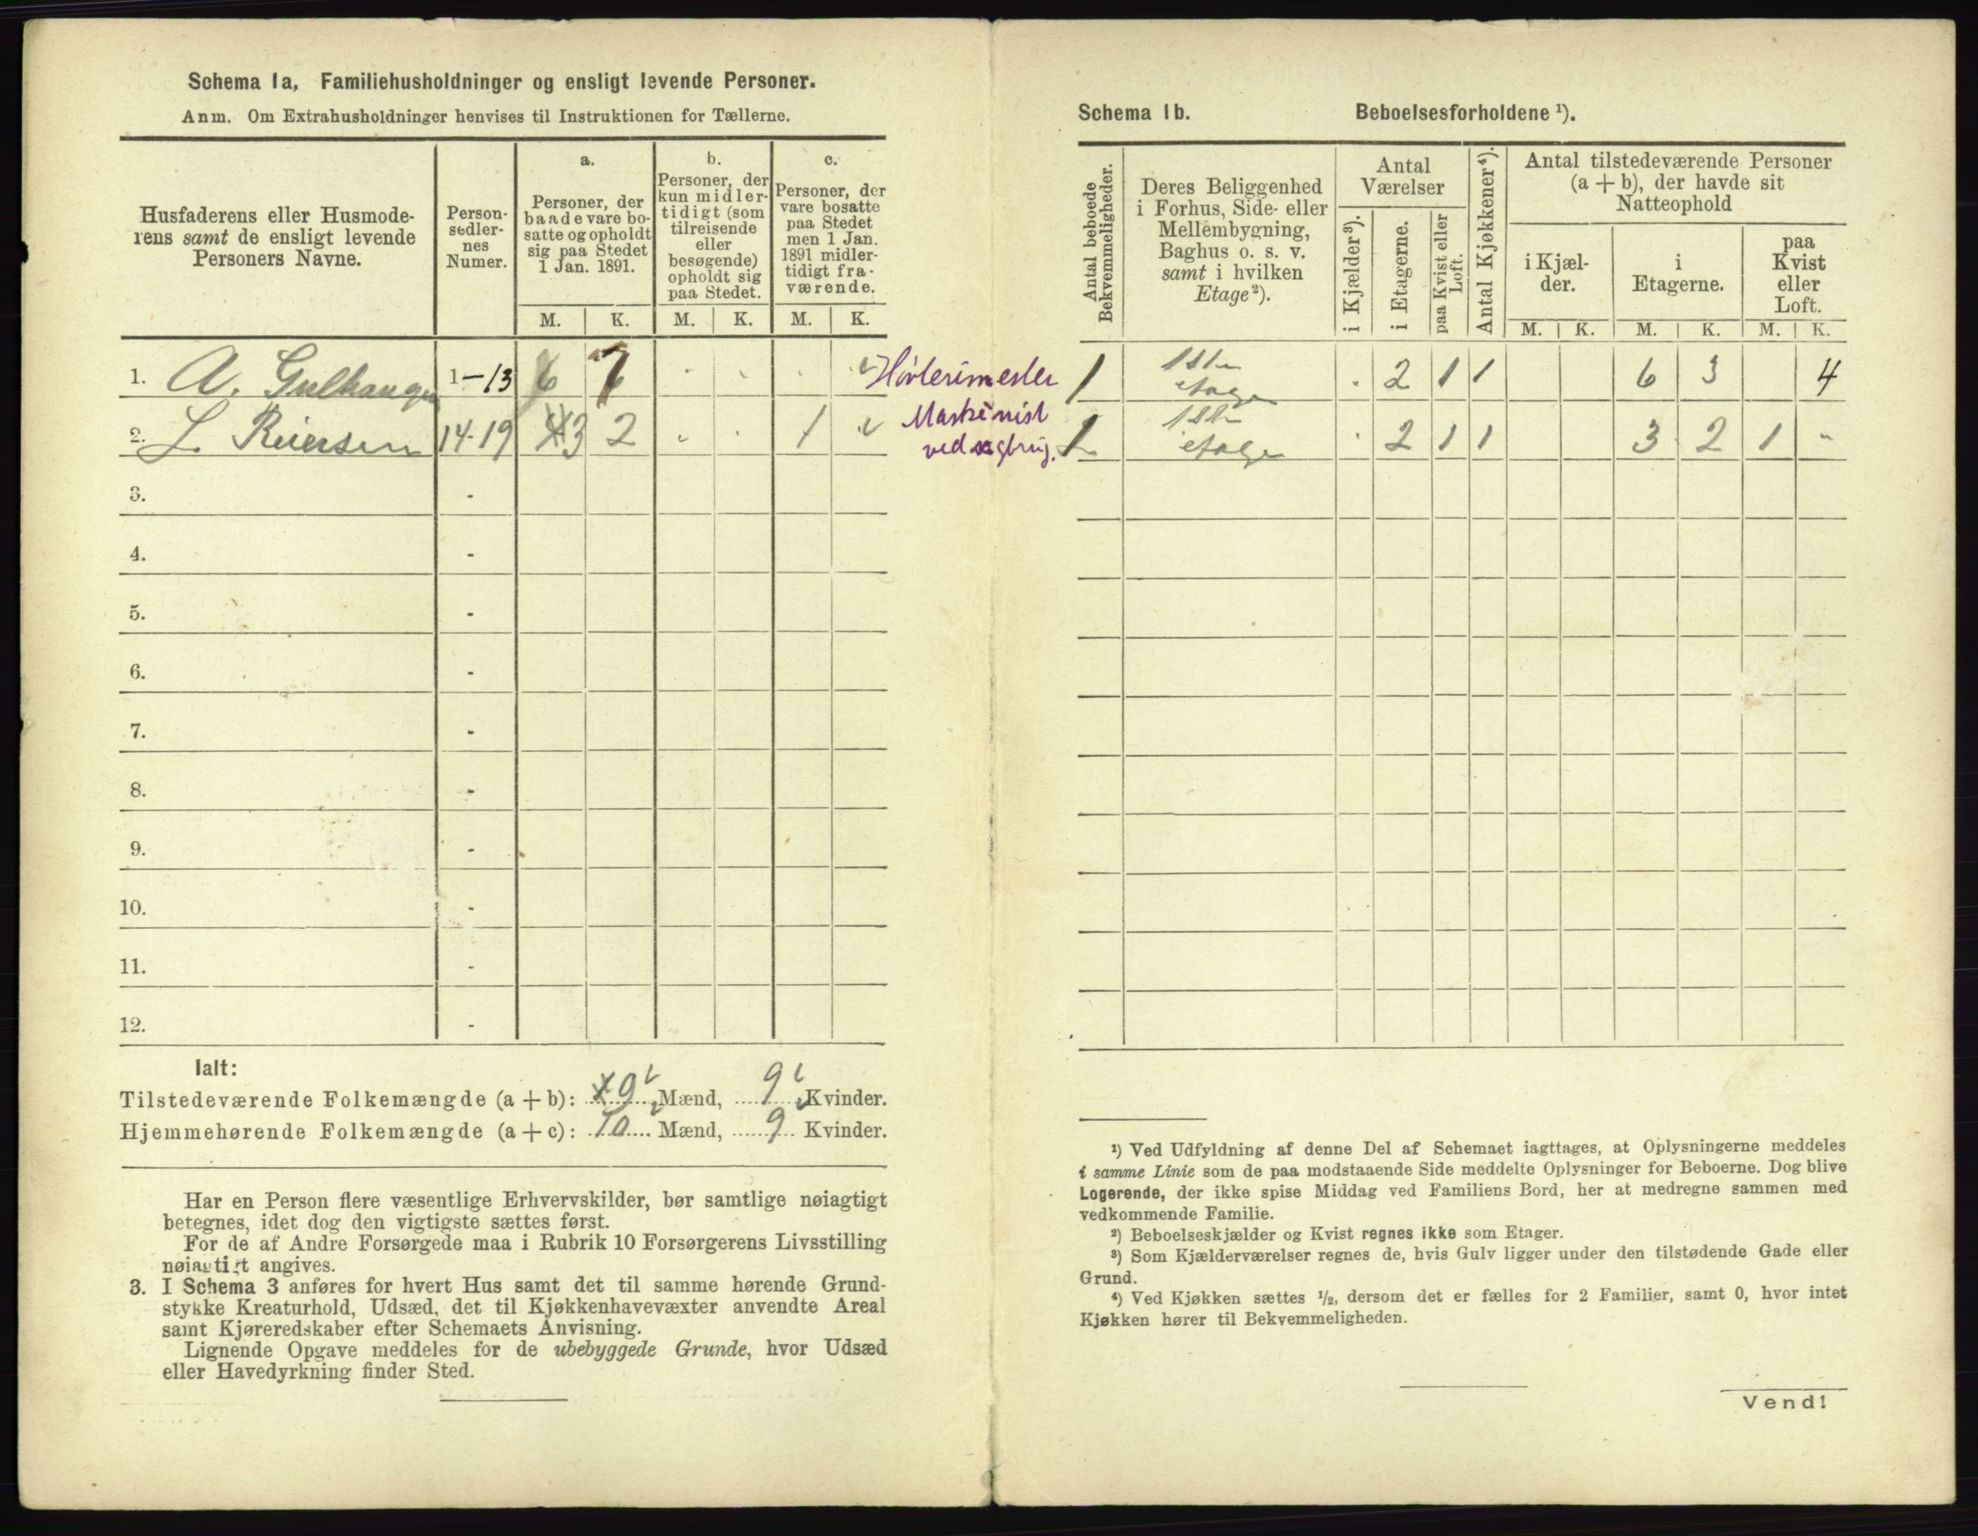 Schema 1a, Familiehusholdninger og ensligt levende Personer.
Anm. Om Extrahusholdninger henvises til Instruktionen for Tællerne.
Husfaderens eller Husmode-
rens samt de ensligt levende
Personers Navne.
Person-
sedler-
nes
Numer.
a.
Personer, der
baade vare bo-
satte og opholdt
sig paa Stedet
1 Jan. 1891.
b.
Personer, der
kun midler-
tidigt (som
tilreisende
eller
besøgende)
opholdt sig
paa Stedet.
c.
Personer, der
vare bosatte
paa Stedet
men 1 Jan.
1891 midler-
tidigt fra-
værende.
M. K. M. K. M. K.
1. A. 1-13 6 7 Høvlerimester
2. L. Reiersen 14-19 3 2 1 Maskinist
ved
3. -
4. -
5. -
6. -
7. -
8. -
9. -
10. -
11. -
12. -
Ialt:
Tilstedeværende Folkemængde (a + b): 9 Mænd, 9 Kvinder.
Hjemmehørende Folkemængde (a + c): 10 Mænd, 9 Kvinder.
Har en Person flere væsentlige Erhvervskilder, bør samtlige nøiagtigt
betegnes, idet dog den vigtigste sættes først.
For de af Andre Forsørgede maa i Rubrik 10 Forsørgerens Livsstilling
nøiagtigt angives.
3. I Schema 3 anføres for hvert Hus samt det til samme hørende Grund-
stykke Kreaturhold, Udsæd, det til Kjøkkenhavevæxter anvendte Areal
samt Kjøreredskaber efter Schemaets Anvisning.
Lignende Opgave meddeles for de ubebyggede Grunde, hvor Udsæd
eller Havedyrkning finder Sted.
Schema 1b. Beboelsesforholdene ¹).
Antal beboede
Bekvemmeligheder.
Deres Beliggenhed
i Forhus, Side- eller
Mellembygning,
Baghus o. s. v.
samt i hvilken
Etage ²).
Antal
Værelser
i Kjælder ³).
i Etagerne.
paa Kvist eller
Loft.
Antal Kjøkkener ⁴).
Antal tilstedeværende Personer
(a + b), der havde sit
Natteophold
i Kjæl-
der.
i
Etagerne.
paa
Kvist
eller
Loft.
M. K. M. K. M. K.
1 1ste
etage 2 1 1 6 3 4
1 1ste
etage 2 1 1 3 2 1
¹) Ved Udfyldning af denne Del af Schemaet iagttages, at Oplysningerne meddeles
i samme Linie som de paa modstaaende Side meddelte Oplysninger for Beboerne. Dog blive
Logerende, der ikke spise Middag ved Familiens Bord, her at medregne sammen med
vedkommende Familie.
²) Beboelseskjælder og Kvist regnes ikke som Etager.
³) Som Kjælderværelser regnes de, hvis Gulv ligger under den tilstødende Gade eller
Grund.
⁴) Ved Kjøkken sættes ½, dersom det er fælles for 2 Familier, samt 0, hvor intet
Kjøkken hører til Bekvemmeligheden.
Vend!